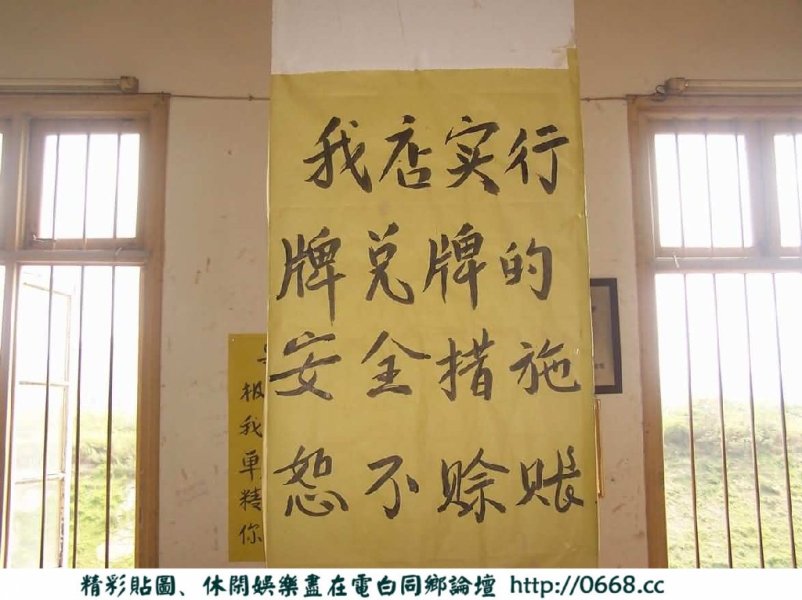 我店实行
牌兑牌的
安全措施
恕不赊账
根我单精你
精彩貼圖、休閑娛樂盡在電白同鄉論壇 http://0668.cc